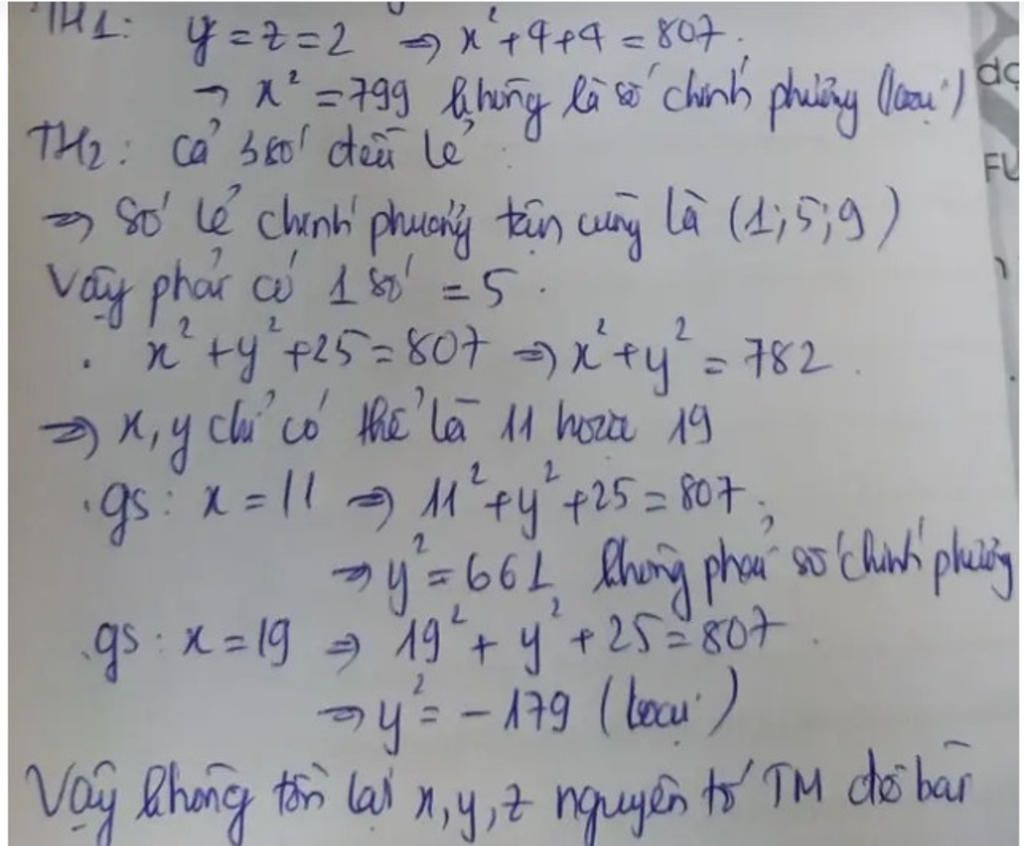 TH1: y = z = 2 ⇒ x² + 4 + 4 = 807.
→ x² = 799 không là số chính phương (loại)
TH2: cả 3 số đều lẻ.
⇒ số lẻ chính phương tận cùng là (1; 5; 9)
Vậy phải có 1 số = 5.
. x² + y² + 25 = 807 ⇒ x² + y² = 782.
⇒ x, y chỉ có thể là 11 hoặc 19
. gs: x = 11 ⇒ 11² + y² + 25 = 807.
⇒ y² = 661 không phải số chính phương
. gs: x = 19 ⇒ 19² + y² + 25 = 807.
⇒ y² = -179 (loại)
Vậy không tồn tại x, y, z nguyên tố TM đề bài
FU